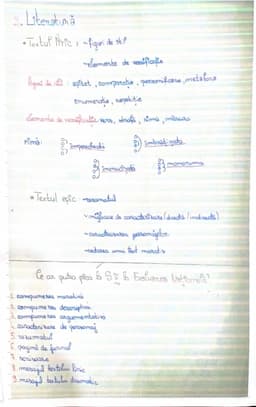 3. Literatură
• Textul liric: - figuri de stil
- elemente de versificație
Figuri de stil: epitet, comparație, personificare, metafora
enumerație, repetiție
Elemente de versificație: vers, strofă, rimă, măsura
Rimă: împerecheată îmbrățișată
încrucișată monorima
• Textul epic - rezumatul
mijloace de caracterizare (directă / indirectă)
- caracterizarea personajelor
textului narativ
Ce ar putea pica la la Evaluarea Națională?
1. compunerea narativă
2. compunerea descriptivă
3. compunerea argumentativă
4. caracterizare de personaj
5. rezumatul
6. pagină de jurnal
7. scrisoare
8. mesajul textului liric
9. mesajul textului dramatic